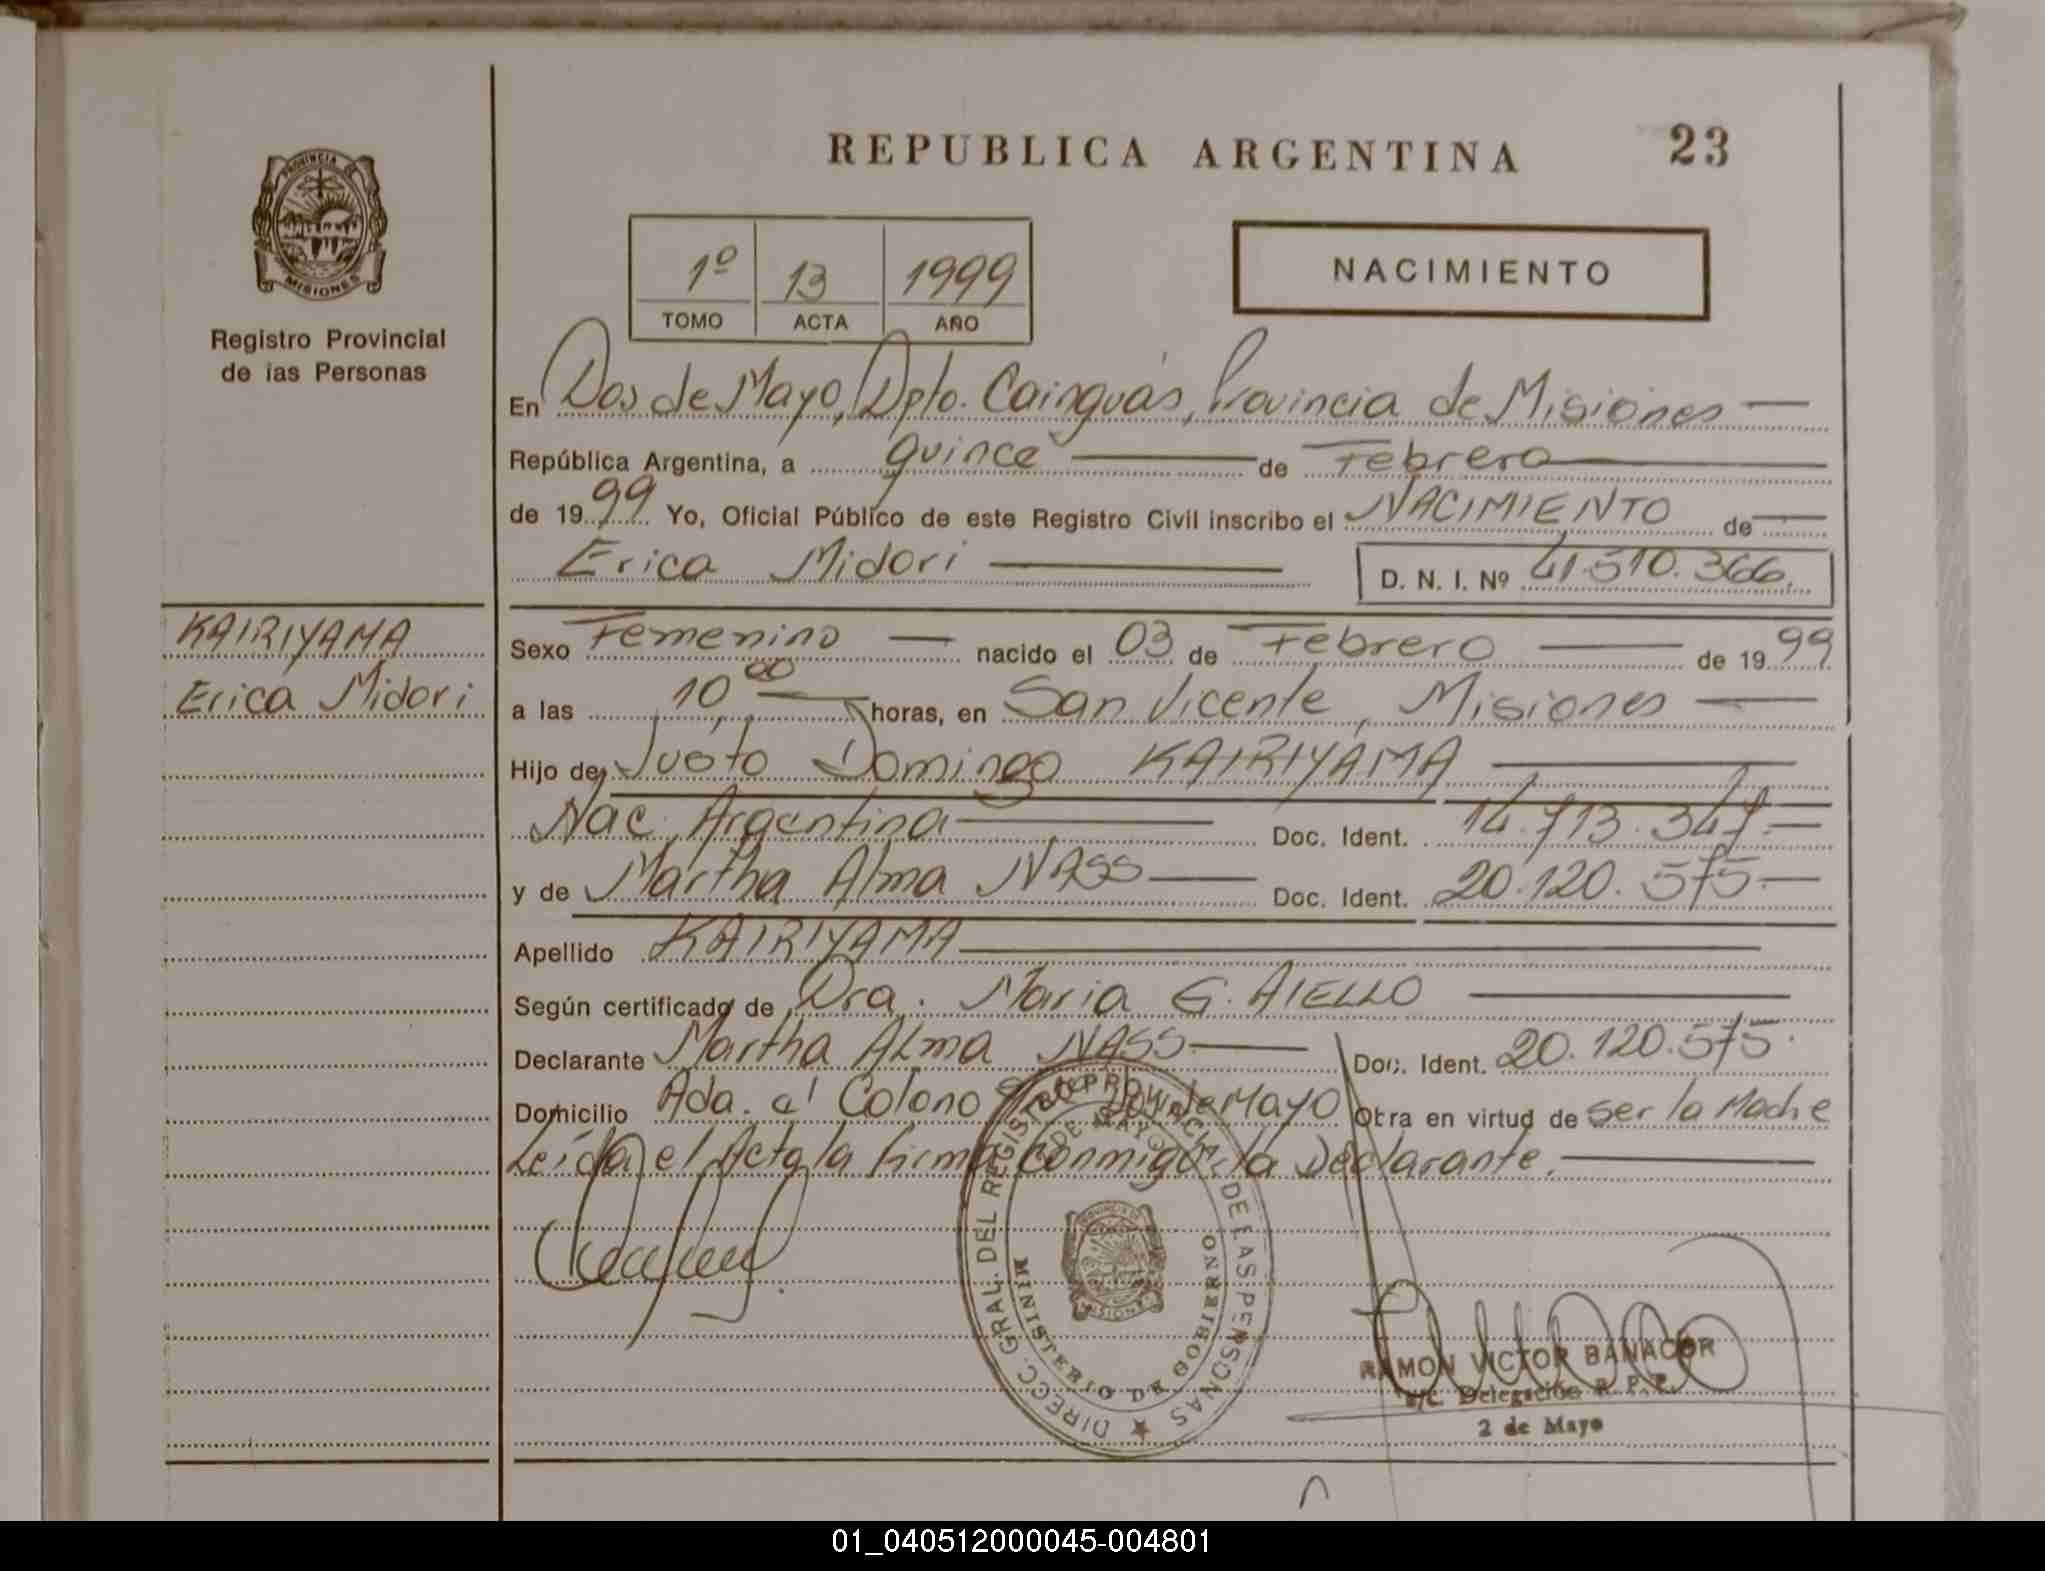 REPUBLICA ARGENTINA 23
PROVINCIA DE
MISIONES
Registro Provincial
de las Personas
1º 13 1999
TOMO ACTA AÑO
NACIMIENTO
En Dos de Mayo, Dpto. Cainguás, Provincia de Misiones —
República Argentina, a quince — de Febrero —
de 1999 Yo, Oficial Público de este Registro Civil inscribo el NACIMIENTO de —
Erica Midori — D. N. I. Nº 41.510.366.
KAIRIYAMA
Erica Midori
Sexo Femenino — nacido el 03 de Febrero — de 1999
a las 10 00 — horas, en San Vicente, Misiones —
Hijo de Justo Domingo KAIRIYAMA —
Nac. Argentina — Doc. Ident. 14.713.347.—
y de Martha Alma NASS — Doc. Ident. 20.120.575.—
Apellido KAIRIYAMA —
Según certificado de Dra. Maria G. AIELLO —
Declarante Martha ALma NASS — Doc. Ident. 20.120.575.
Domicilio Ada. al Colono Dos de Mayo Obra en virtud de ser la Madre
Leída el Acta la firma conmigo la Declarante. —
DIRECC. GRAL. DEL REGISTRO PROVINCIAL DE LAS PERSONAS
2 DE MAYO
MINISTERIO DE GOBIERNO
PROVINCIA DE
MISIONES
RAMON VICTOR BANACOR
a/c. Delegación R. P. P.
2 de Mayo
01_040512000045-004801